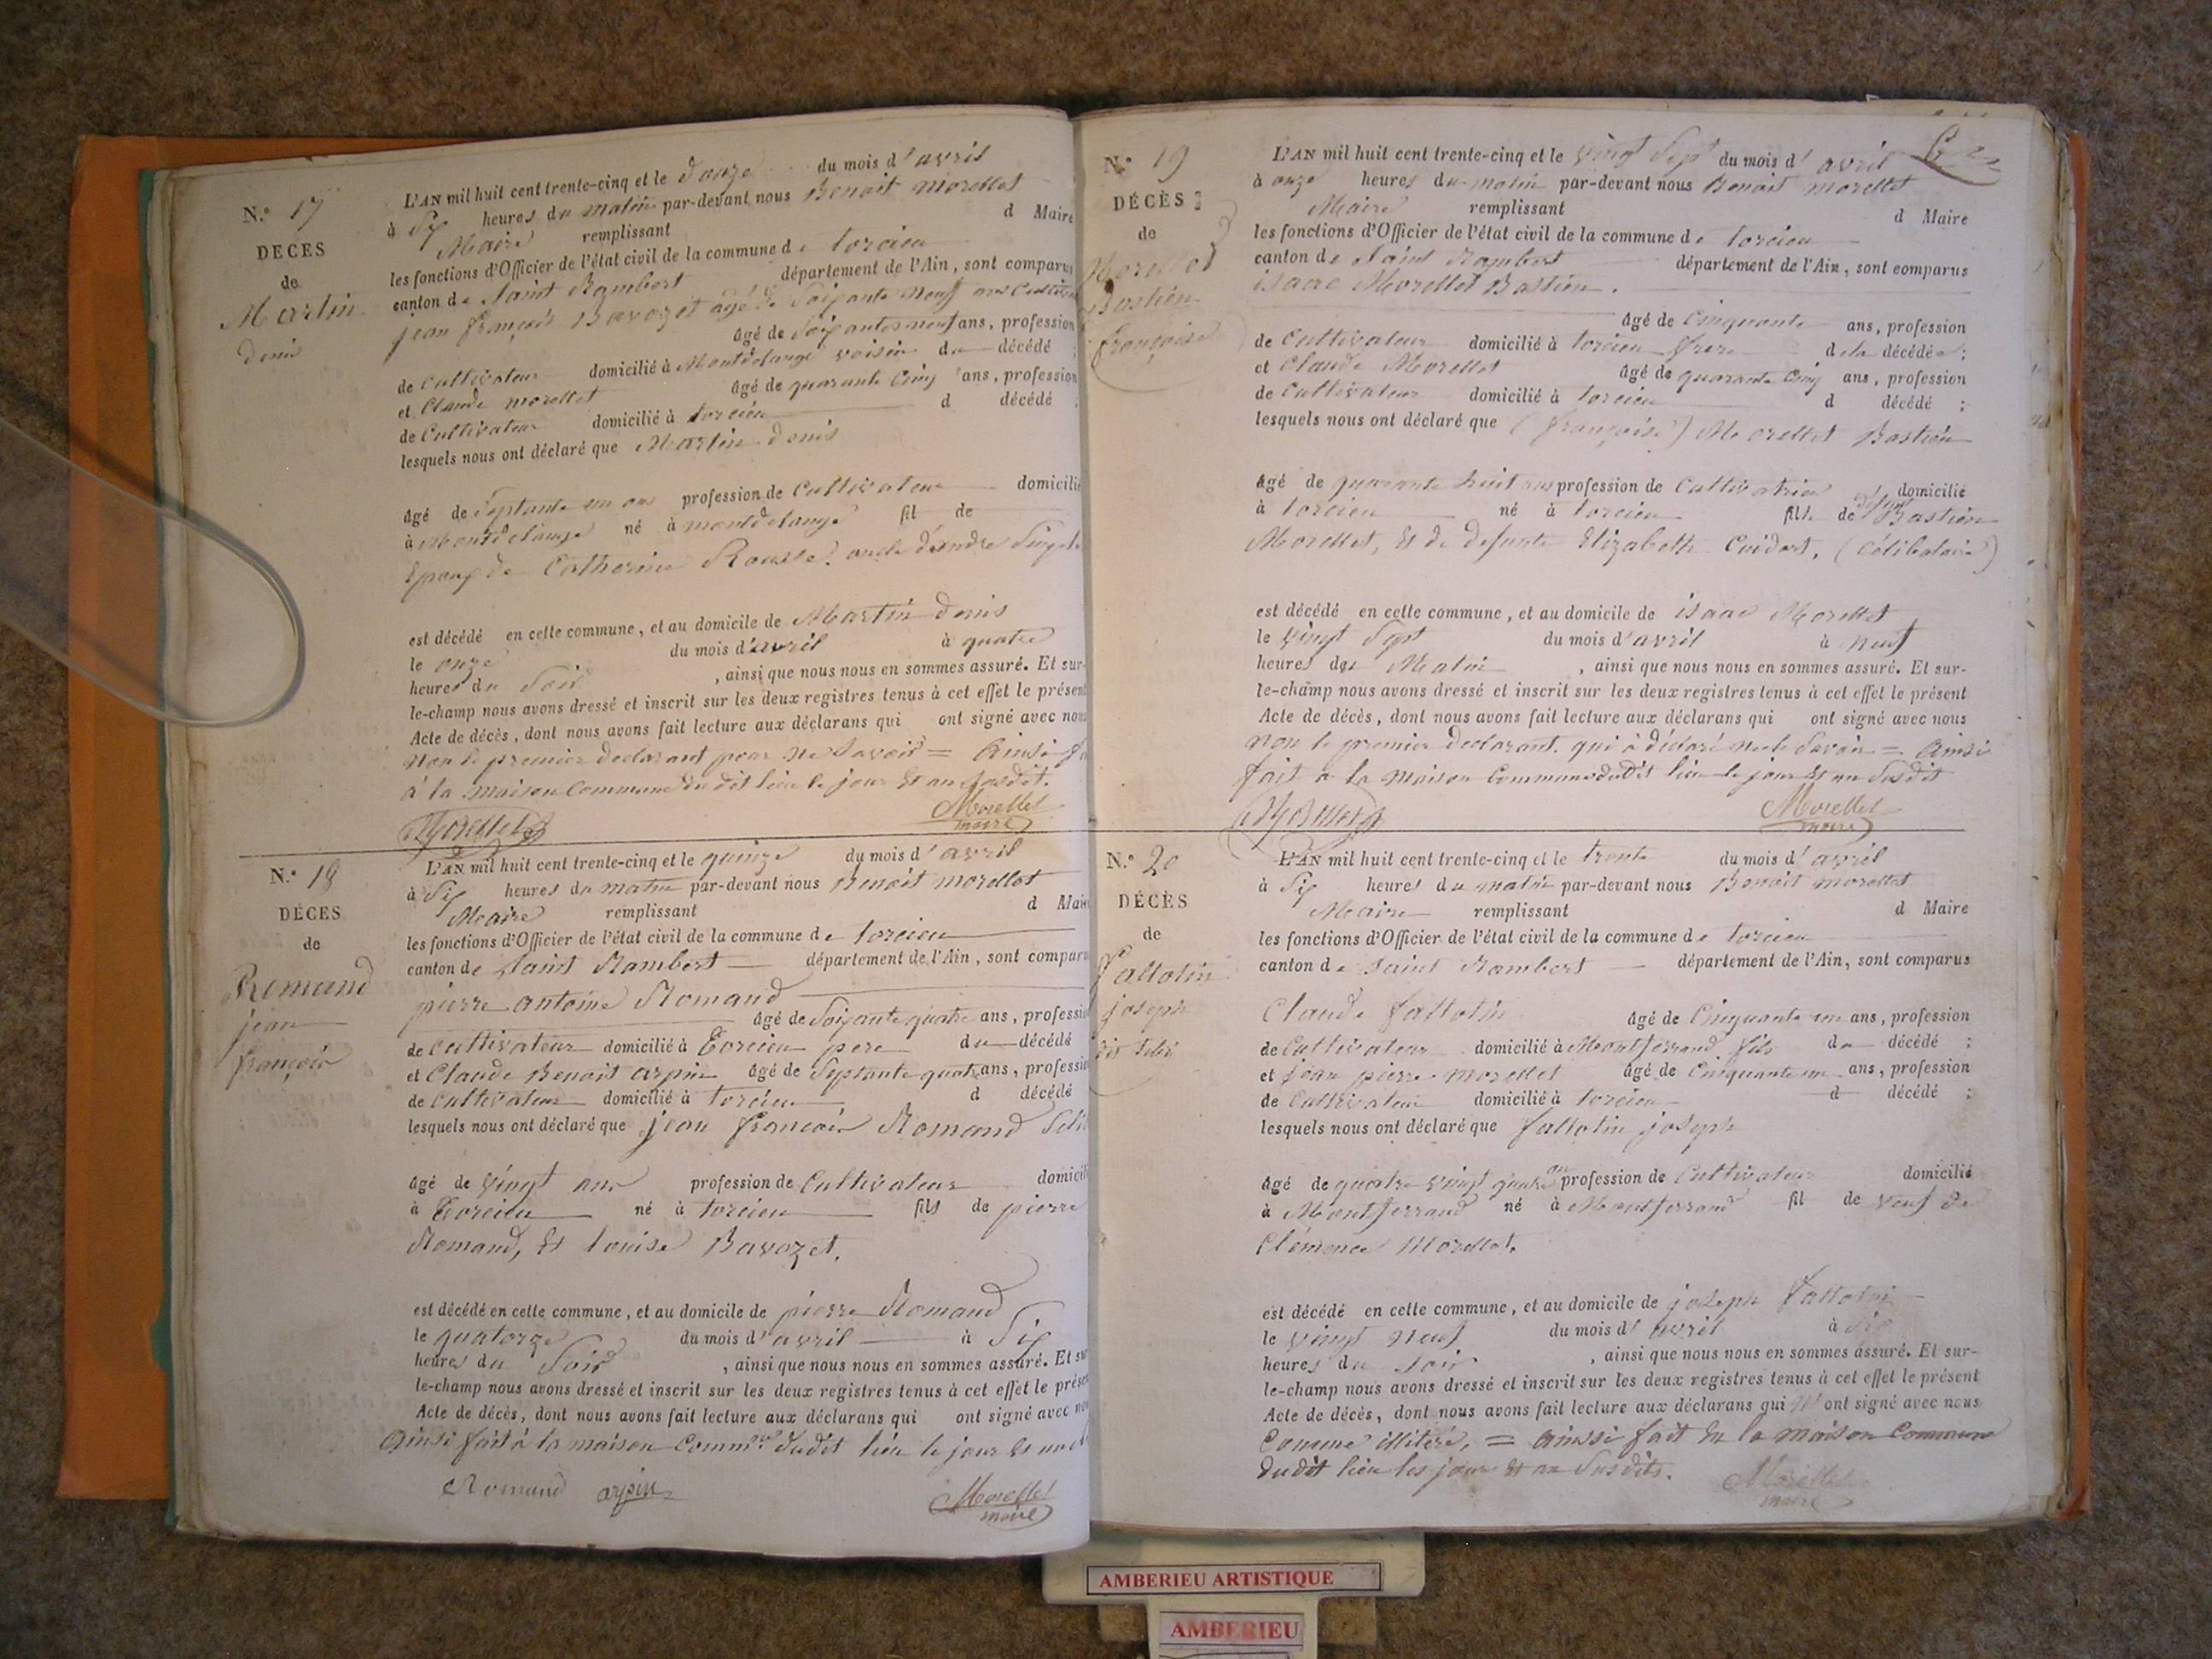 N.° 17
DECES
de
Martin
denis
L'AN mil huit cent trente-cinq et le douze du mois d'avril
à Six heures du matin par-devant nous Benoit morellet
Maire remplissant d Maire
les fonctions d'Officier de l'état civil de la commune de torcieu
canton de Saint Rambert département de l'Ain, sont comparus
jean françois Bavozet agé de Soixante Neuf ans
âgé de Soixante neuf ans, profession
de Cultivateur domicilié à Montdelange voisin du décédé ;
et Claude morellet âgé de quarante Cinq ans, profession
de Cultivateur domicilié à torcieu d décédé
lesquels nous ont déclaré que Martin denis
âgé de Septante un ans profession de Cultivateur domicilié
à Montdelange né à montdelange fil de
Epoux de Catherine Rousse.
est décédé en cette commune, et au domicile de Martin denis
le onze du mois d'avril à quatre
heures du Soir , ainsi que nous nous en sommes assuré. Et sur-
le-champ nous avons dressé et inscrit sur les deux registres tenus à cet effet le présent
Acte de décès, dont nous avons fait lecture aux déclarans qui ont signé avec nous
non le premier declarant pour ne Savoir = Ainsi
à la maison Commune du dit lieu le jour Et an Susdit.
Morellet Morellet
maire
N.° 18
DÉCES
de
Romand
jean
françois
L'AN mil huit cent trente-cinq et le quinze du mois d'avril
à Six heures du matin par-devant nous Benoit morellet
Maire remplissant d Maire
les fonctions d'Officier de l'état civil de la commune de torcieu
canton de Saint Rambert département de l'Ain, sont comparus
pierre antoine Romand
âgé de Soixante quatre ans, profession
de cultivateur domicilié à Torcieu pere du décédé
et Claude Benoit arpin âgé de Septante quatre ans, profession
de Cultivateur domicilié à torcieu d décédé
lesquels nous ont déclaré que jean françois Romand
âgé de vingt ans profession de Cultivateur domicilié
à Torcieu né à torcieu fils de pierre
Romand, Et louise Bavozet.
est décédé en cette commune, et au domicile de pierre Romand
le quatorze du mois d'avril à Six
heures du Soir , ainsi que nous nous en sommes assuré. Et sur
le-champ nous avons dressé et inscrit sur les deux registres tenus à cet effet le présent
Acte de décès, dont nous avons fait lecture aux déclarans qui ont signé avec nous
Ainsi fait à la maison Commne dudit lieu le jour Et
Romand arpin Morellet
maire
N.° 19
DÉCÈS
de
Morellet
Bastien
françoise
L'AN mil huit cent trente-cinq et le vingt Sept du mois d'avril
à onze heures du matin par-devant nous Benoit morellet
Maire remplissant d Maire
les fonctions d'Officier de l'état civil de la commune de torcieu
canton de Saint Rambert département de l'Ain, sont comparus
isaac Morellet Bastien.
âgé de Cinquante ans, profession
de Cultivateur domicilié à torcieu frere de la décédée ;
et Claude Morellet âgé de quarante Cinq ans, profession
de Cultivateur domicilié à torcieu d décédé ;
lesquels nous ont déclaré que (françoise) Morellet Bastien
âgé de quarante huit ans profession de Cultivatrice domicilié
à torcieu né à torcieu fille de défunt Bastien
Morellet, Et de defunte Elizabeth Cuidort, (Célibataire)
est décédé en cette commune, et au domicile de isaac Morellet
le vingt Sept du mois d'avril à neuf
heures du Matin , ainsi que nous nous en sommes assuré. Et sur-
le-champ nous avons dressé et inscrit sur les deux registres tenus à cet effet le présent
Acte de décès, dont nous avons fait lecture aux déclarans qui ont signé avec nous
non le premier declarant. qui à déclaré ne le Savoir = Ainsi
fait a la maison Commune dudit lieu le jour Et an Susdit
Morellet Morellet
maire
N.° 20
DÉCÈS
de
fallotin
joseph
L'AN mil huit cent trente-cinq et le trente du mois d'avril
à Six heures du matin par-devant nous Benoit morellet
Maire remplissant d Maire
les fonctions d'Officier de l'état civil de la commune de torcieu
canton de Saint Rambert département de l'Ain, sont comparus
Claude fallotin âgé de Cinquante un ans, profession
de Cultivateur domicilié à Montferrand fils du décédé ;
et jean pierre morellet âgé de Cinquante un ans, profession
de Cultivateur domicilié à torcieu d décédé ;
lesquels nous ont déclaré que fallotin joseph
âgé de quatre vingt ans profession de Cultivateur domicilié
à Montferrand né à Montferrand fil de veuf de
Clémence Morellet.
est décédé en cette commune, et au domicile de joseph fallotin
le vingt neuf du mois d'avril à Six
heures du Soir , ainsi que nous nous en sommes assuré. Et sur-
le-champ nous avons dressé et inscrit sur les deux registres tenus à cet effet le présent
Acte de décès, dont nous avons fait lecture aux déclarans qui n'ont signé avec nous
Comme illiteré, = ainssi fait En la maison Commune
dudit lieu les jour Et an Susdits.
Morellet
maire
AMBERIEU ARTISTIQUE
AMBERIEU